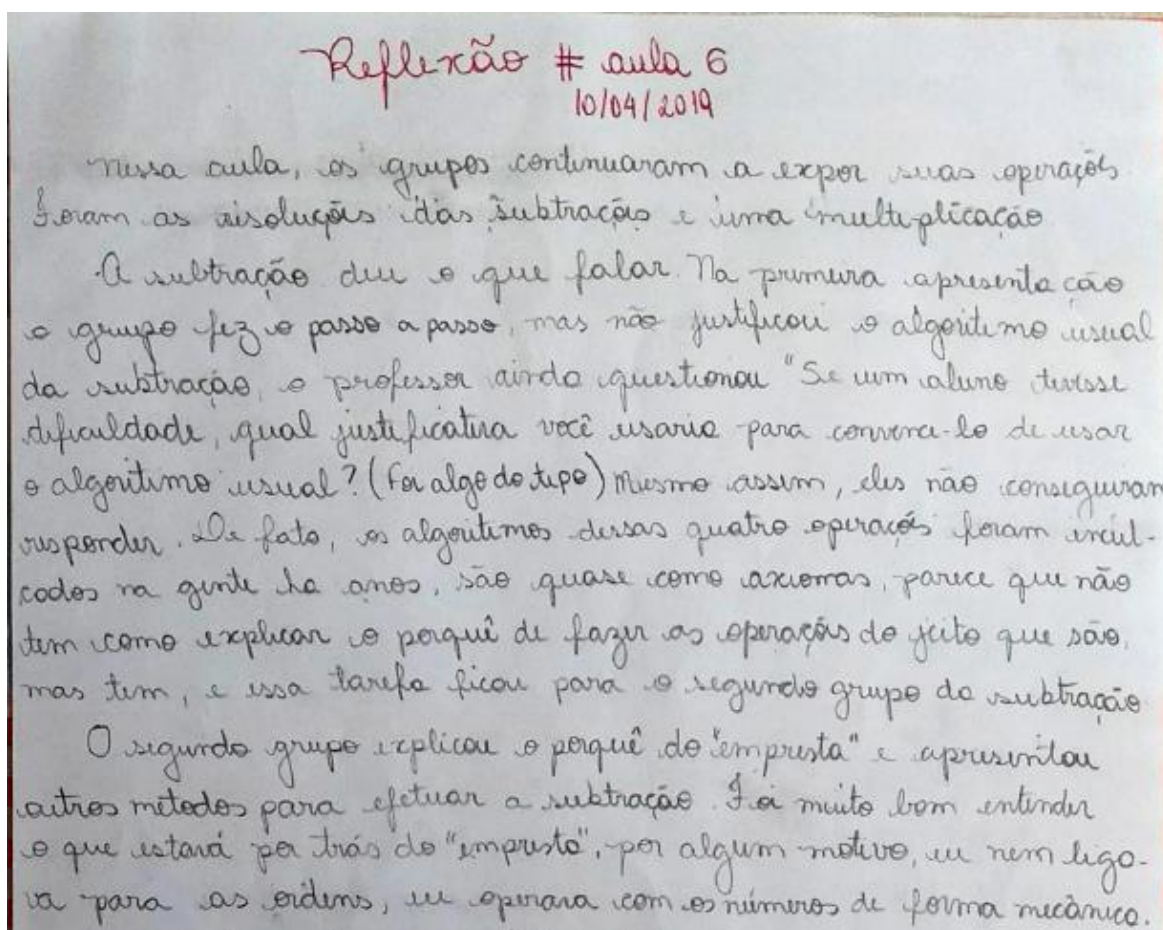 Reflexão # aula 6
10/04/2019
Nessa aula, os grupos continuaram a expor suas operações
Foram as resoluções das subtrações e uma multiplicação
A subtração deu o que falar. Na primeira apresentação
o grupo fez o passo a passo, mas não justificou o algoritimo usual
da subtração, o professor ainda questionou "Se um aluno tivesse
dificuldade, qual justificativa você usaria para convence-lo de usar
o algoritimo usual? (Foi algo do tipo) Mesmo assim, eles não conseguiram
responder. De fato, os algoritimos dessas quatro operações foram incul-
cados na gente ha anos, são quase como axiomas, parece que não
tem como explicar o porquê de fazer as operações do jeito que são,
mas tem, e essa tarefa ficou para o segundo grupo da subtração
O segundo grupo explicou o porquê do "empresta" e apresentou
outros métodos para efetuar a subtração. Foi muito bom entender
o que estava por trás do "empresta", por algum motivo, eu nem liga-
va para as ordens, eu operava com os números de forma mecânica.